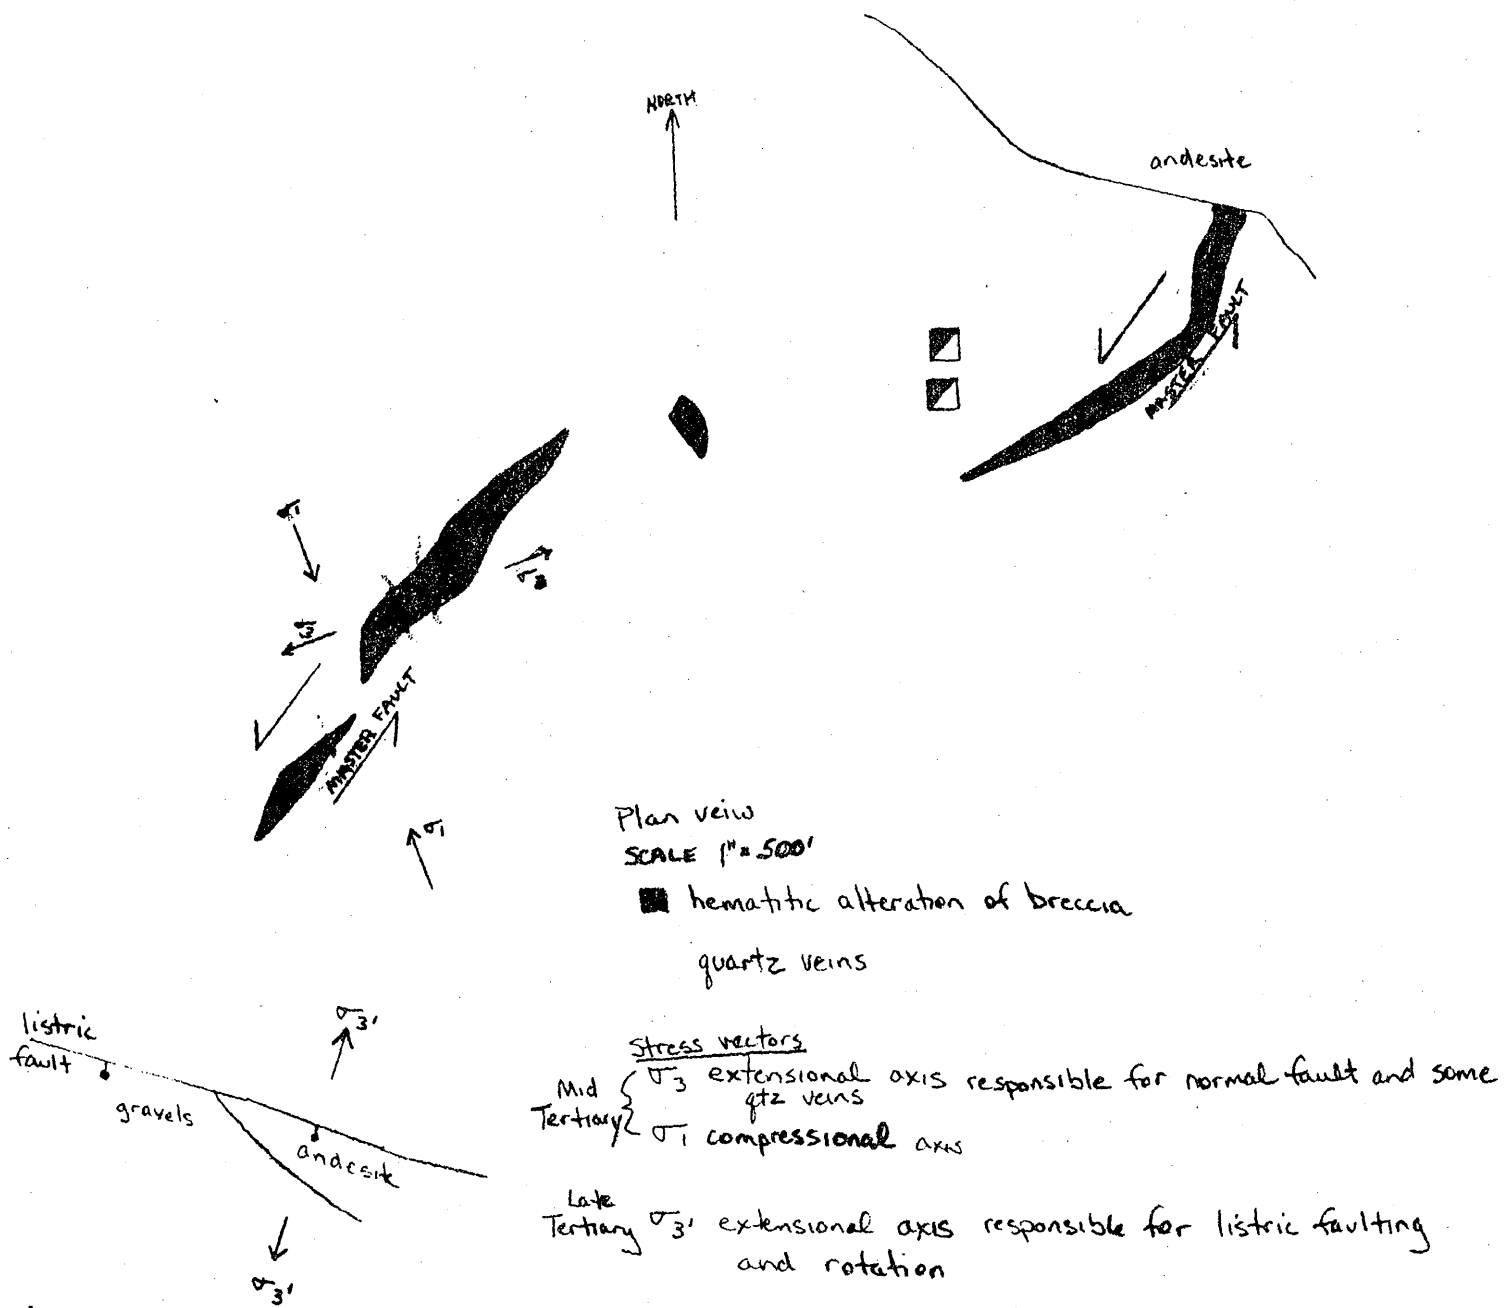 NORTH
andesite
MASTER FAULT
σ1
σ3
σ3
MASTER FAULT
σ1
Plan veiw
SCALE 1"=500'
hematitic alteration of breccia
quartz veins
listric
fault
σ3'
gravels
andesite
σ3'
Stress vectors
Mid
Tertiary
σ3 extensional axis responsible for normal fault and some
qtz veins
σ1 compressional axis
Late
Tertiary
σ3' extensional axis responsible for listric faulting
and rotation